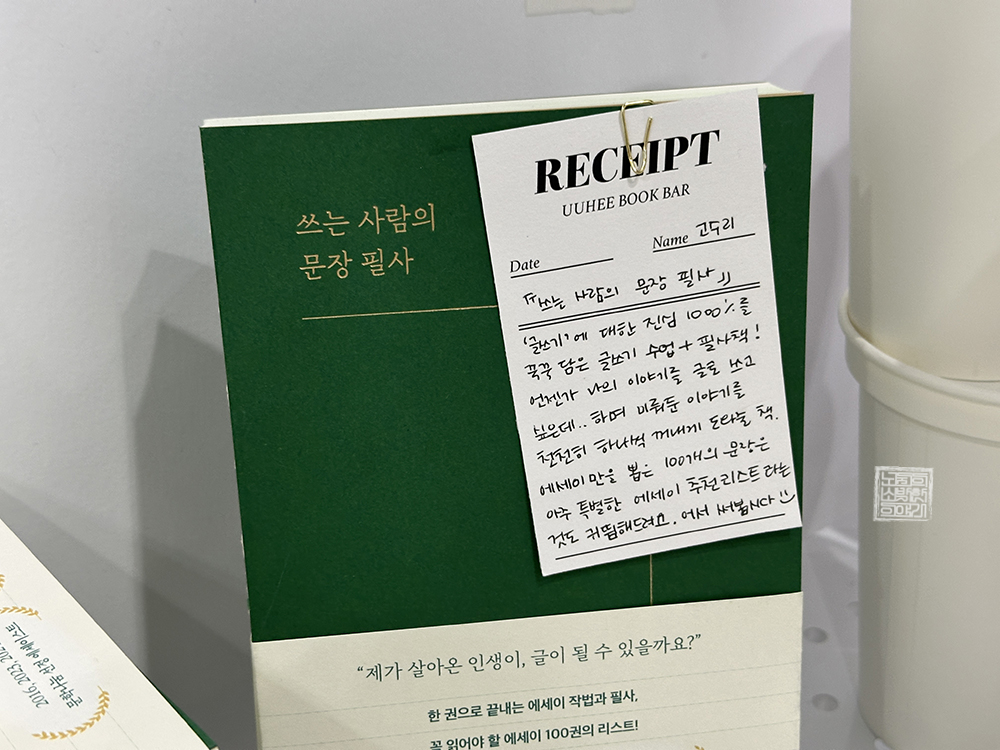 쓰는 사람의
문장 필사
RECEIPT
UUHEE BOOK BAR
Date
Name 고수리
쓰는 사람의 문장 필사
'글쓰기'에 대한 진심 1000%를
꾹꾹 담은 글쓰기 수업 + 필사책!
언젠가 나의 이야기를 글로 쓰고
싶은데.. 하며 미뤄둔 이야기를
천천히 하나씩 꺼내게 도와줄 책.
에세이만을 뽑은 100개의 문장은
아주 특별한 에세이 추천리스트라는
것도 귀띔해드려요. 어서 써봅시다 :)
“제가 살아온 인생이, 글이 될 수 있을까요?”
한 권으로 끝내는 에세이 작법과 필사,
꼭 읽어야 할 에세이 100권의 리스트!
2016, 2023, 202